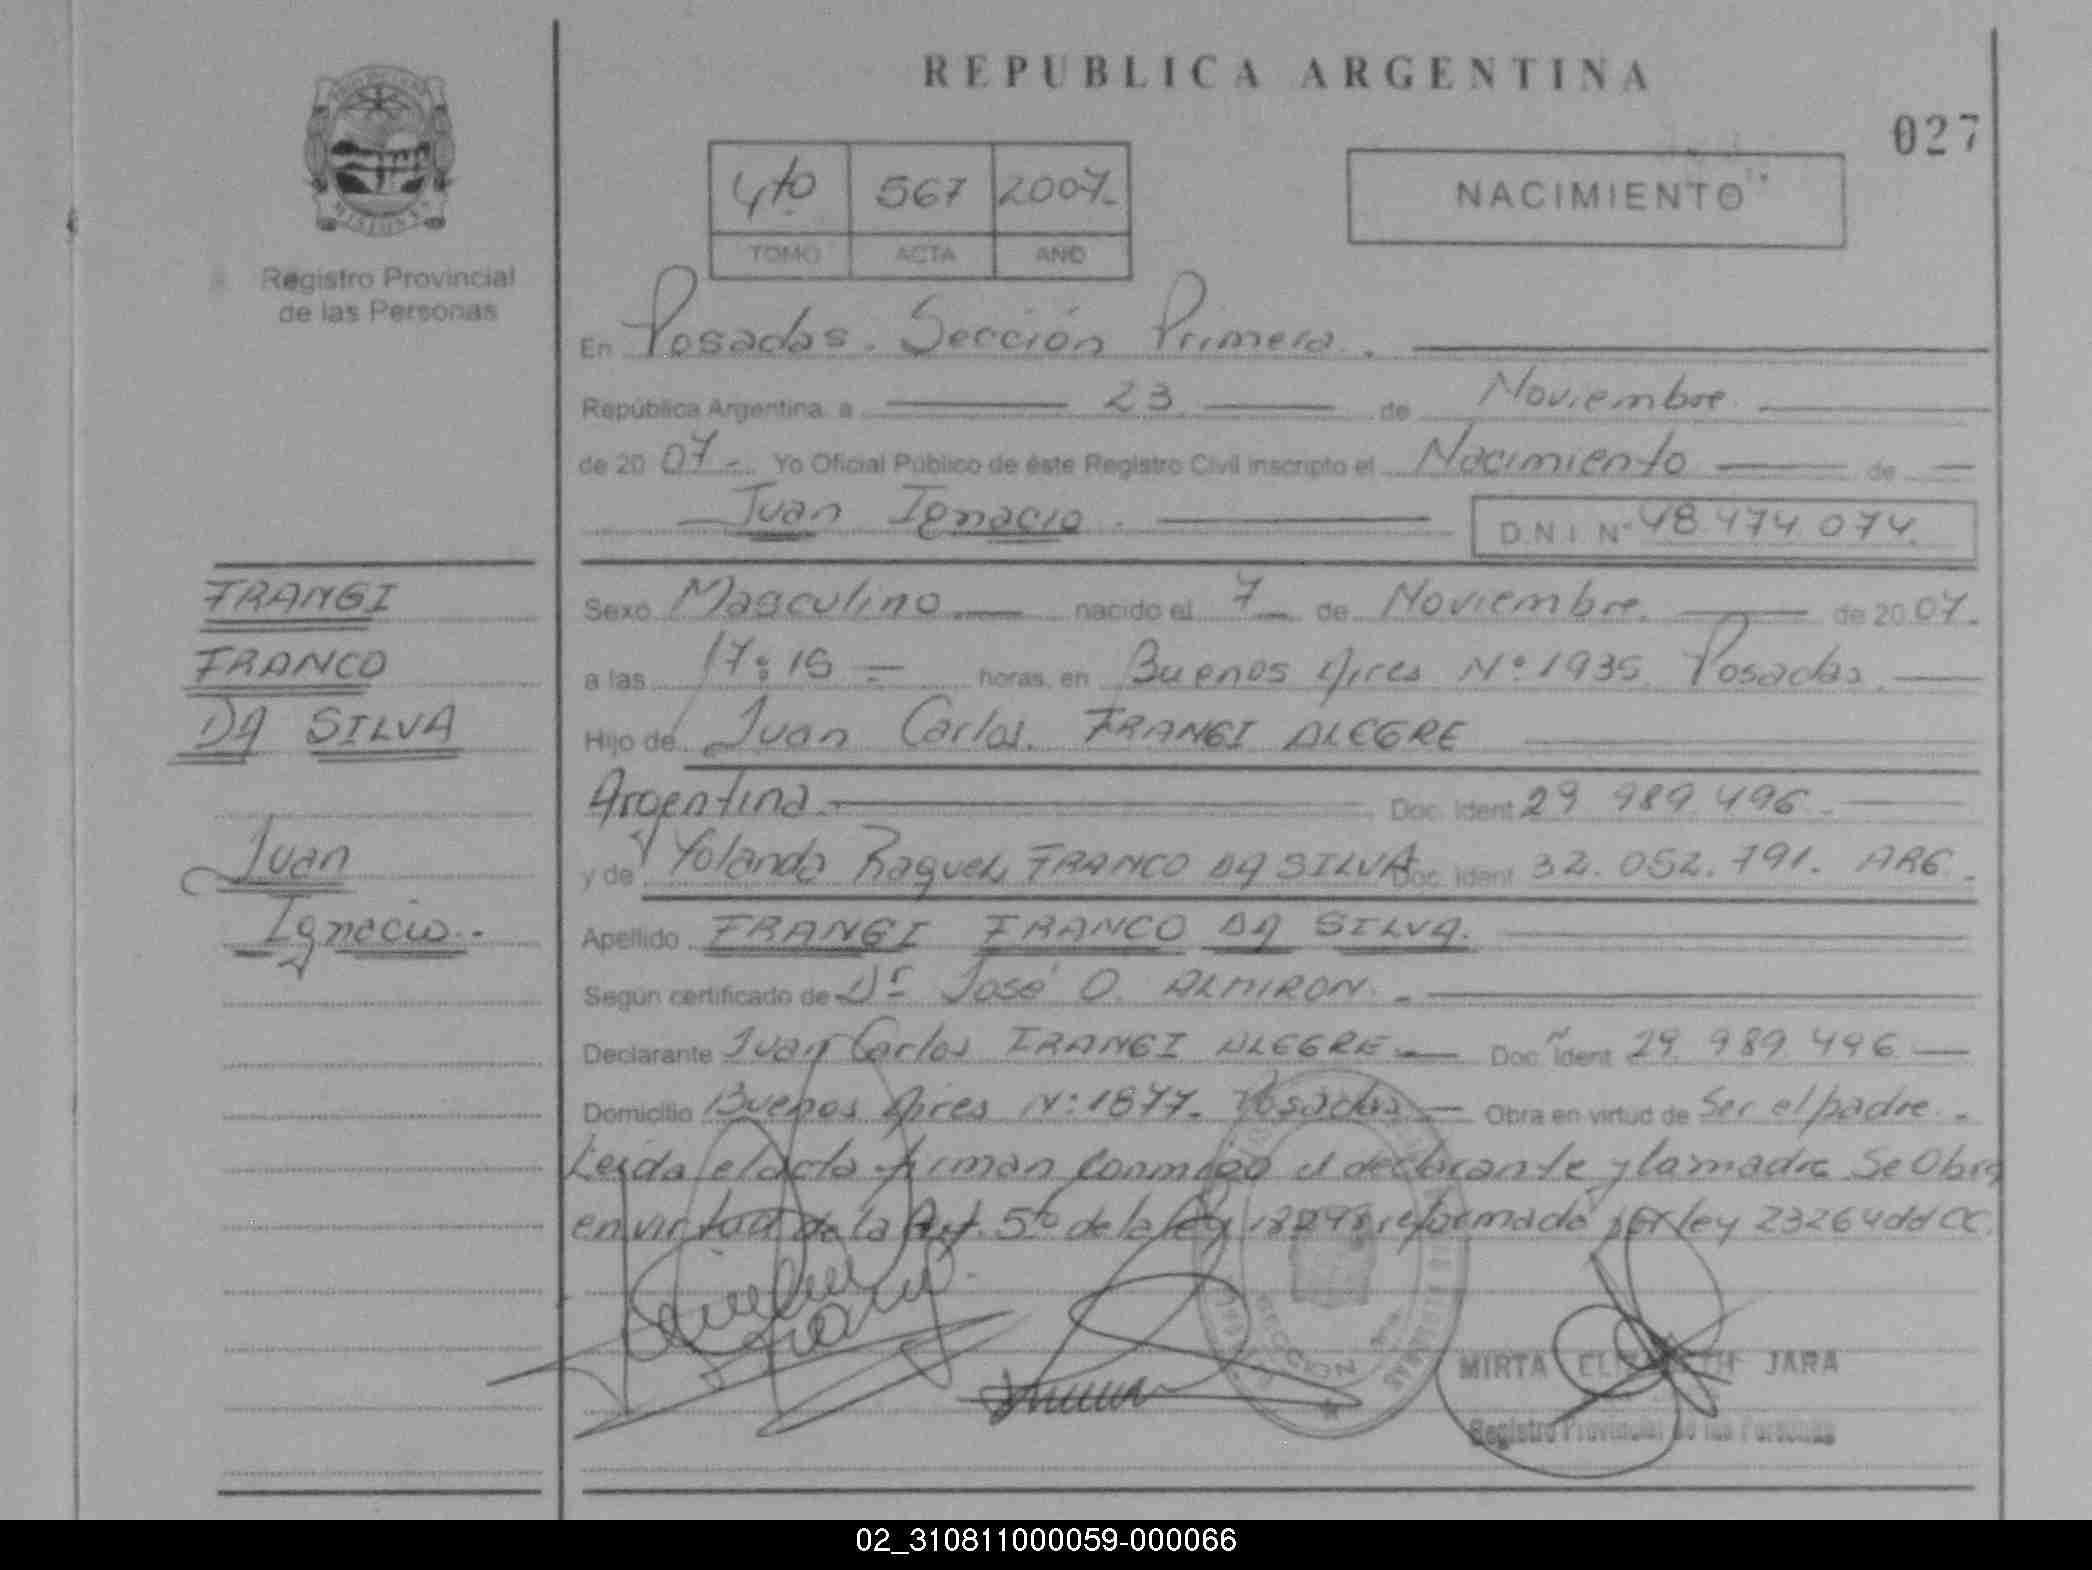 REPUBLICA ARGENTINA
027
4to 567 2007.-
TOMO ACTA AÑO
NACIMIENTO
MISIONES
Registro Provincial
de las Personas
En Posadas. Sección Primera.
República Argentina, a 23 de Noviembre
de 20 07.- Yo Oficial Público de éste Registro Civil inscripto el Nacimiento de
Juan Ignacio. D.N.I. N° 48.474.074.
FRANGI
FRANCO
DA SILVA
Juan
Ignacio.-
Sexo Masculino nacido el 7 de Noviembre. de 20 07.-
a las 17:15 horas, en Buenos Aires N° 1935. Posadas.
Hijo de Juan Carlos. FRANGI ALEGRE
Argentina. Doc. Ident 29.989.496.
y de Yolanda Raquel FRANCO DA SILVA Doc. Ident 32.052.791. ARG.-
Apellido FRANGI FRANCO DA SILVA.
Según certificado de Dr José O. ALMIRON.-
Declarante Juan Carlos FRANGI ALEGRE.- Doc. Ident 29.989.496
Domicilio Buenos Aires N° 1877. Posadas.- Obra en virtud de Ser el padre.-
Leida el acta firman conmigo el declarante y la madre Se Obra
en virtud de la Art. 5to de la ley 18248 reformado por ley 23264 del CC.
SECCION
MIRTA ELIZABETH JARA
Registro Provincial de las Personas
02_310811000059-000066